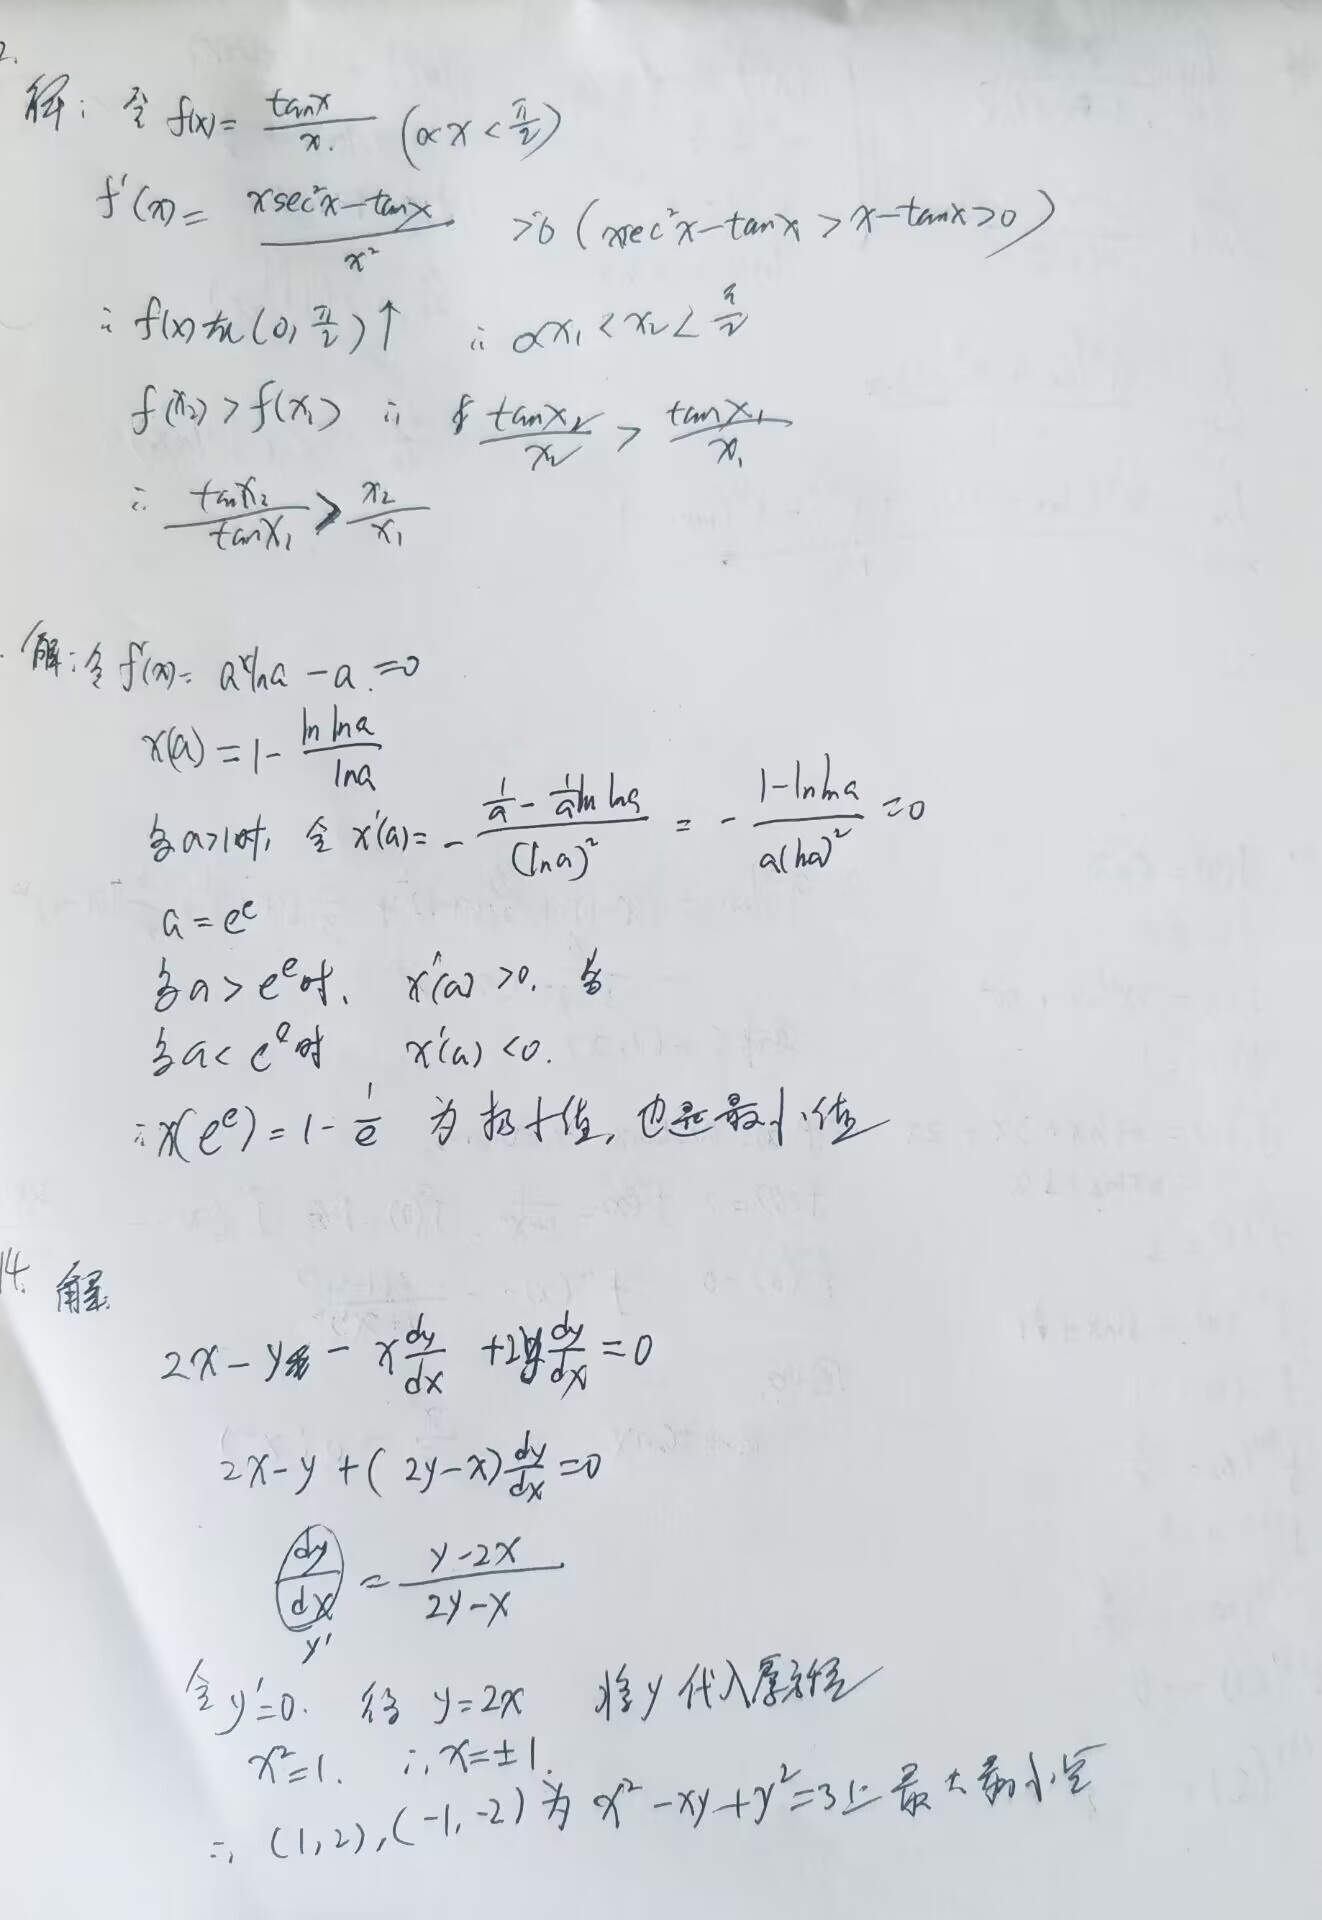 2.
解: 令 f(x)= tanx/x. (0<x<π/2)
f'(x)= (xsec²x-tanx)/x² >0 (xsec²x-tanx>x-tanx>0)
∴ f(x)在(0,π/2)↑ ∴ 0<x₁<x₂<π/2
f(x₂)>f(x₁) ∴ tanx₂/x₂ > tanx₁/x₁
∴ tanx₂/tanx₁ > x₂/x₁
解: 令 f'(x)= aˣlna-a.=0
x(a)=1- lnlna/lna
当a>1时, 令 x'(a)= - (1/a - 1/a lnlna)/(lna)² = - (1-lnlna)/(a(lna)²) =0
a=eᵉ
当a>eᵉ时, x'(a)>0. 当
当a<eᵉ时 x'(a)<0.
∴x(eᵉ)=1-1/e 为极小值, 也是最小值
14. 解.
2x-y - x dy/dx +2y dy/dx =0
2x-y+(2y-x) dy/dx =0
dy/dx = (y-2x)/(2y-x)
y'
令y'=0. 得 y=2x 将y代入原方程
x²=1. ∴x=±1.
∴, (1,2),(-1,-2)为 x²-xy+y²=3上最大最小点